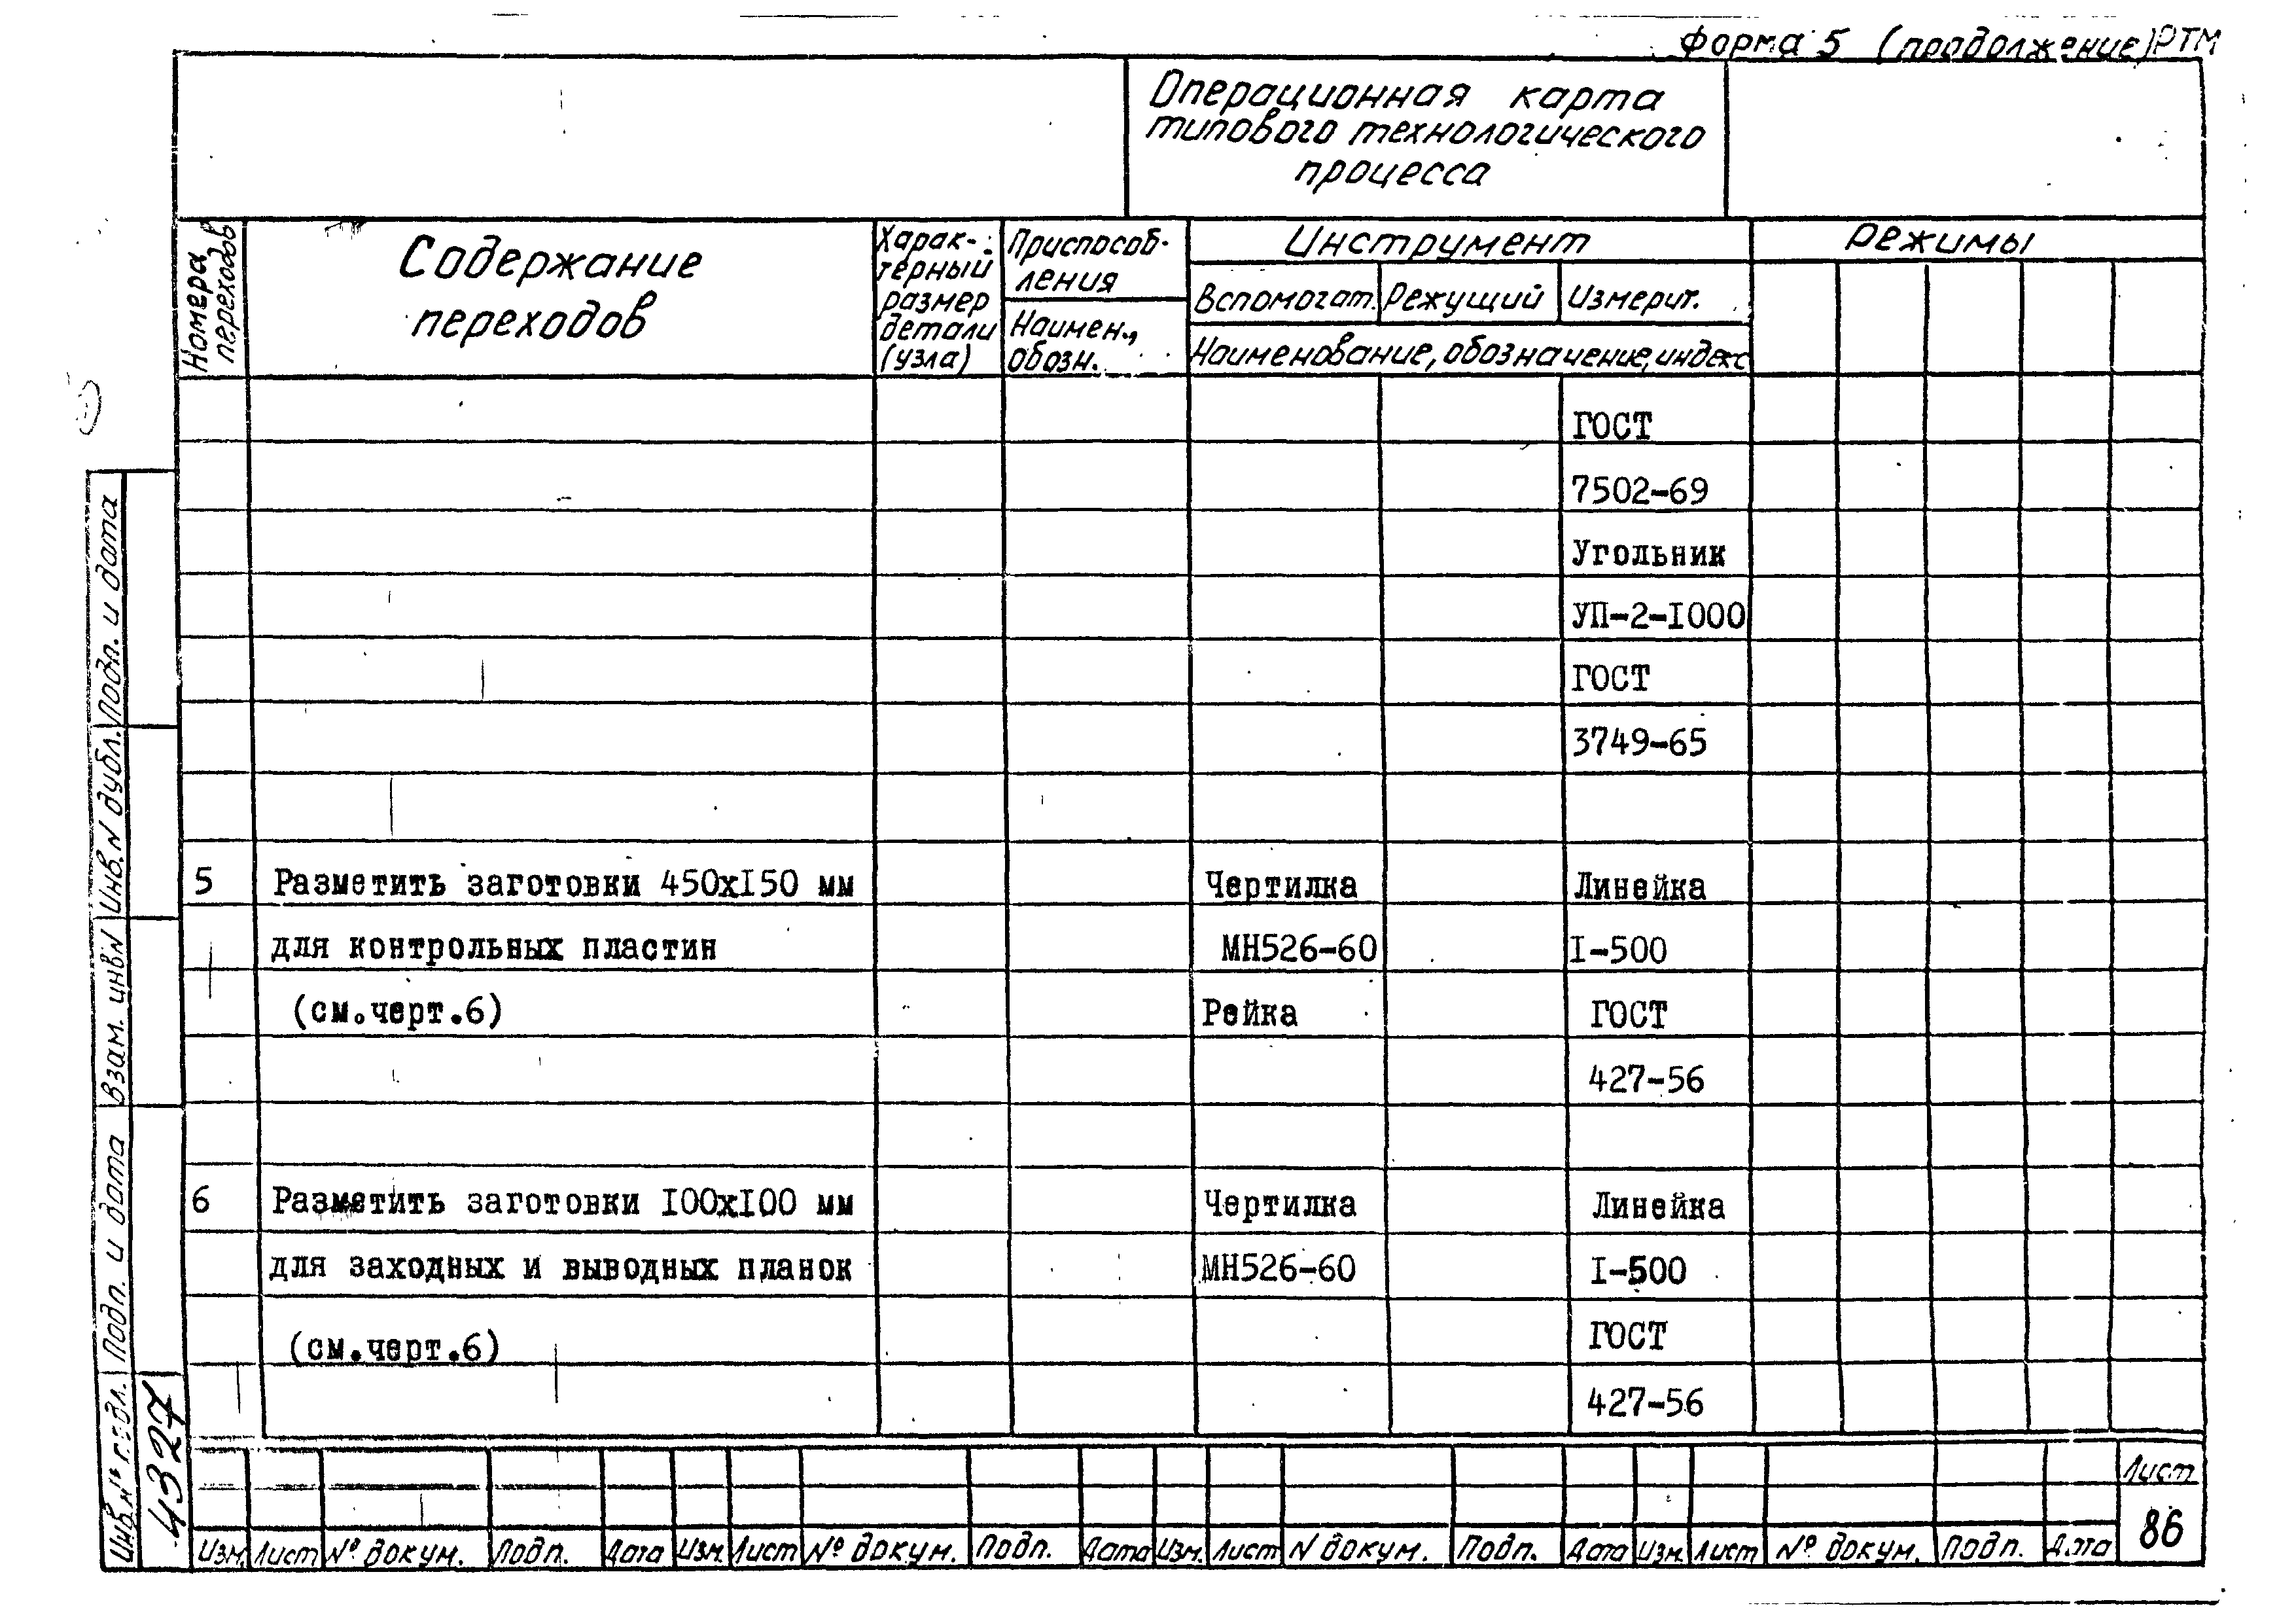 Форма 5 (продолжение) РТМ
Операционная карта
типового технологического
процесса
Номера переходов
Содержание
переходов
Харак-
терный
размер
детали
(узла)
Приспособ-
ления
Наимен.,
обозн.
Инструмент
Вспомогат. Режущий Измерит.
Наименование, обозначение, индекс
Режимы
ГОСТ
7502-69
Угольник
УП-2-I000
ГОСТ
3749-65
5 Разметить заготовки 450хI50 мм Чертилка Линейка
для контрольных пластин МН526-60 I-500
(см.черт.6) Рейка ГОСТ
427-56
6 Разметить заготовки I00хI00 мм Чертилка Линейка
для заходных и выводных планок МН526-60 I-500
(см.черт.6) ГОСТ
427-56
Подп. и дата
Инв. N дубл.
Взам. инв N
Подп. и дата
Инв. № подл.
4327
Изм. Лист № докум. Подп. Дата Изм. Лист № докум. Подп. Дата Изм. Лист N докум. Подп. Дата Изм. Лист № докум. Подп. Дата
Лист
86